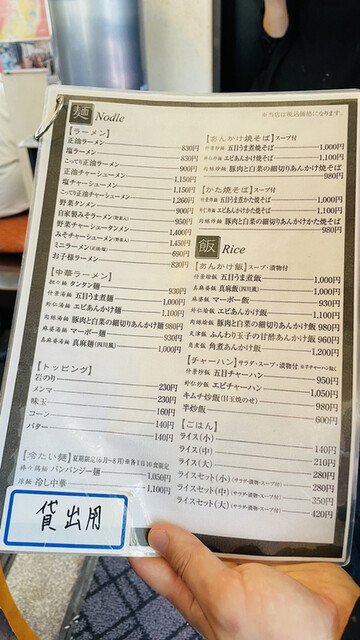 ※当店は税込価格になります。
麺 Nodle
【ラーメン】
正油ラーメン 830円
塩ラーメン 830円
こってり正油ラーメン 900円
正油チャーシューメン 1,150円
塩チャーシューメン 1,150円
こってり正油チャーシューメン 1,260円
野菜タンメン 900円
自家製みそラーメン(野菜入) 950円
野菜チャーシュータンメン 1,400円
みそチャーシューメン(野菜入) 1,450円
ミニラーメン(正油塩) 690円
お子様ラーメン 820円
【中華ラーメン】
担々麺 タンタン麺 930円
什景湯麺 五目うま煮麺 1,000円
蝦仁湯麺 エビあんかけ麺 1,100円
肉絲湯麺 豚肉と白菜の細切りあんかけ麺 980円
麻婆湯麺 マーボー麺 930円
真麻湯麺 真麻麺(四川風) 1,000円
【トッピング】
岩のり 230円
メンマ 230円
味玉 160円
コーン 140円
バター 140円
【冷たい麺】夏期限定(6月~8月)※各1日10食限定
棒々鶏麺 バンバンジー麺 1,050円
涼麺 冷し中華 1,100円
【あんかけ焼そば】スープ付
什景炒麺 五目うま煮焼そば 1,000円
蝦仁炒麺 エビあんかけ焼そば 1,100円
肉絲炒麺 豚肉と白菜の細切りあんかけ焼そば 980円
【かた焼そば】スープ付
五目うま煮かた焼そば 1,000円
エビあんかけかた焼そば 1,100円
豚肉と白菜の細切りあんかけかた焼そば 980円
飯 Rice
【あんかけ飯】スープ・漬物付
什景烩飯 五目うま煮飯 1,000円
真麻婆飯 真麻飯(四川風) 1,000円
麻婆飯 マーボー飯 930円
蝦仁烩飯 エビあんかけ飯 1,100円
肉絲烩飯 豚肉と白菜の細切りあんかけ飯 980円
天津飯 ふんわり玉子の甘酢あんかけ飯 960円
角煮飯 角煮あんかけ飯 1,200円
【チャーハン】サラダ・スープ・漬物付
什景炒飯 五目チャーハン 950円
蝦仁炒飯 エビチャーハン 1,050円
キムチ炒飯(目玉焼のせ) 980円
半炒飯 680円
【ごはん】
ライス(小) 140円
ライス(中) 210円
ライス(大) 280円
ライスセット(小)(サラダ・漬物・スープ付) 280円
ライスセット(中)(サラダ・漬物・スープ付) 350円
ライスセット(大)(サラダ・漬物・スープ付) 420円
貸出用